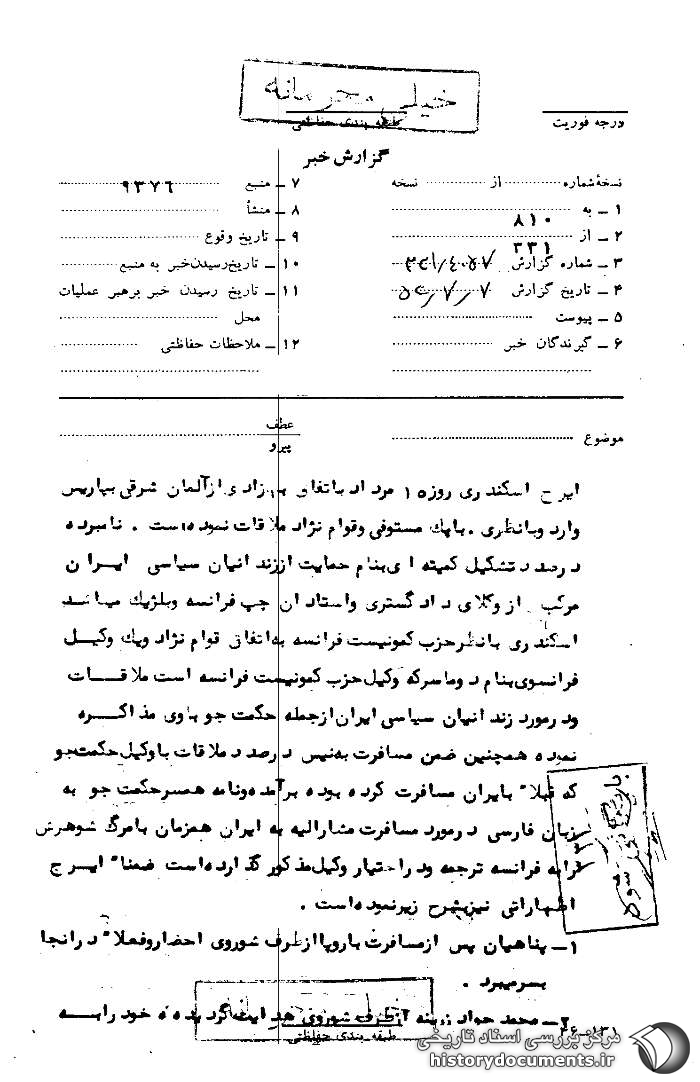 خیلی محرمانه
طبقه بندی حفاظتی
درجه فوریت
گزارش خبر
نسخهٔ شماره از نسخه
۱ ـ به ۸۱۰
۲ ـ از ۳۳۱
۳ ـ شماره گزارش
۴ ـ تاریخ گزارش
۵ ـ پیوست
۶ ـ گیرندگان خبر
۷ ـ منبع ۹۳۷۶
۸ ـ منشأ
۹ ـ تاریخ وقوع
۱۰ ـ تاریخ رسیدن خبر به منبع
۱۱ ـ تاریخ رسیدن خبر برهبر عملیات
محل
۱۲ ـ ملاحظات حفاظتی
موضوع
عطف
پیرو
ایرج اسکندری روز ۱۵ مرداد باتفاق بهزادی از آلمان شرقی بپاریس
وارد وبانظری . بابك مستوفی وقوام نژاد ملاقات نموده است . نامبرده
درصدد تشکیل کمیته ای بنام حمایت اززندانیان سیاسی ایران
مرکب از وکلای دادگستری واستادان چپ فرانسه وبلژیك میباشد
اسکندری بانظر حزب کمونیست فرانسه به اتفاق قوام نژاد ویك وکیل
فرانسوی بنام دوماسرکه وکیل حزب کمونیست فرانسه است ملاقات
ودرمورد زندانیان سیاسی ایران ازجمله حکمت جو باوی مذاکره
نموده همچنین ضمن مسافرت به نیس درصدد ملاقات باوکیل حکمت جو
که قبلاً بایران مسافرت کرده بوده برآمده ونامه همسر حکمت جو به
زبان فارسی درمورد مسافرت مشارالیه به ایران همزمان بامرگ شوهرش
رابه فرانسه ترجمه ودراختیار وکیل مذکور گذارده است ضمناً ایرج
اظهاراتی نیز بشرح زیر نموده است .
۱ـ پناهیان پس ازمسافرت باروپا ازطرف شوروی احضار وفعلاً درانجا
بسرمیبرد .
۲ـ محمد جواد زرینه ازطرف شوروی هدایت گردیده که خود رابه
طبقه بندی حفاظتی
۴۶ـ۱۳۱
مرکز بررسی اسناد تاریخی
historydocuments.ir